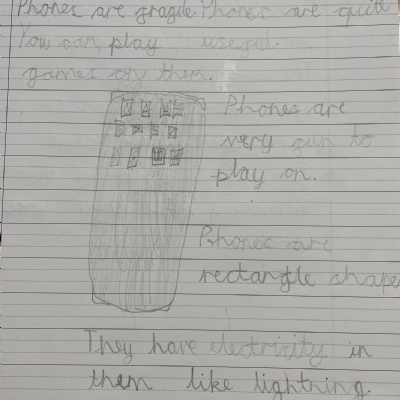 Phones are fragile. Phones are quite
You can play useful.
games on them.
Phones are
very fun to
play on.
Phones are
rectangle shape
They have electricity in
them like lightning.